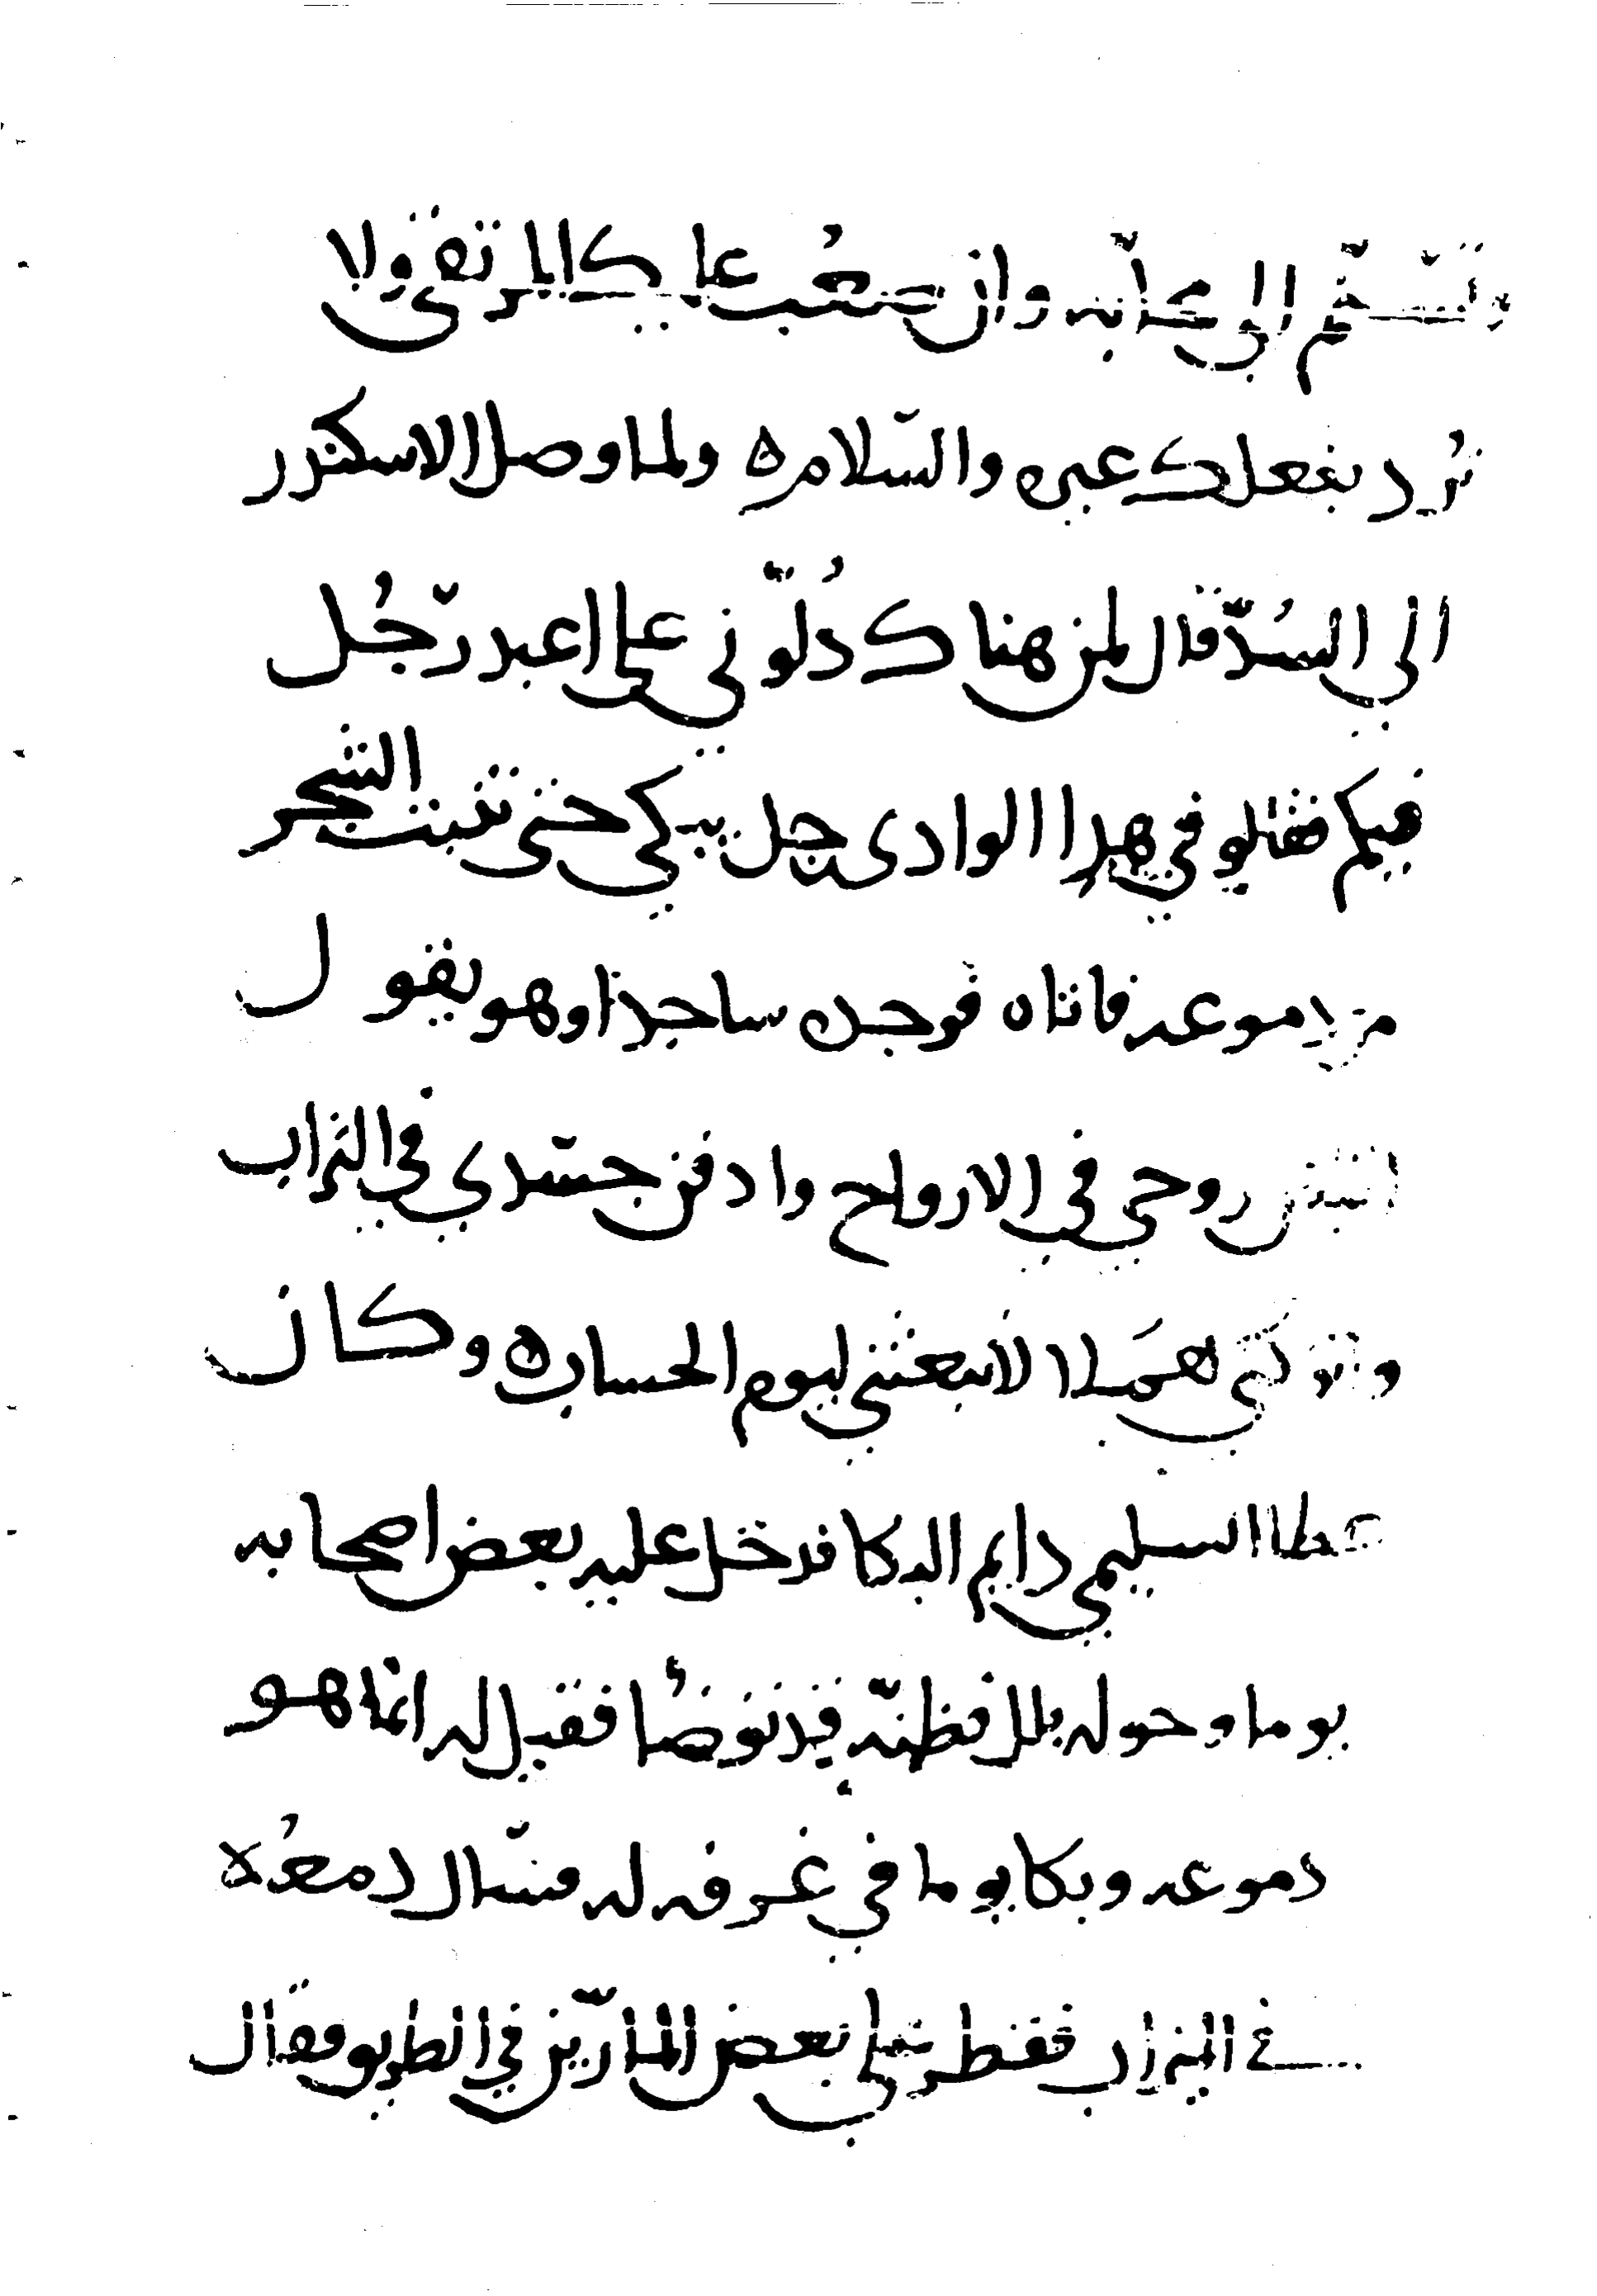 الى عذابه وان صعُب عليك المرتقى ولا
ترد بفعلك عيي والسّلام ه ولما وصل الاسكندر
الى السُدّ قال لمن هناك دُلّوني على اعبد رّجُل
فيكم فقالو في هذا الوادى رجل يبكي حتى تنبت الشجر
من دموعه فاتاه فوجده ساجدا وهو يقول
اقبض روحي في الارواح وادفن جسّدي في التراب
وتركني هَمَلا لا تبعثني ليوم الحساب ه وكان
عطا السليمي دايم البكا فدخل عليه بعض اصحابه
يوما وحوله بلل فظنّه قد توضُا فقيل له انما هو
دموعه وبكا يوما في غرفه له فسّال دمعُه
في الميزاب فقطر على بعض المارّين في الطريق فقال